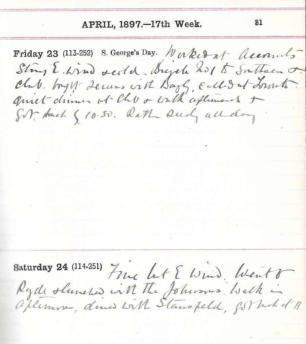 APRIL, 1897.—17th Week. 81
Friday 23 (113-252) S. George's Day. Worked at Accounts
Strong E. wind & cold. Bicycle to Southsea &
Club. with called at
quiet dinner at Club & walk afterwards &
got back by 10.50. Rather seedy all day
Saturday 24 (114-251) Fine but E wind. Went to
Ryde & lunched with the Johnsons. Walk in
afternoon, dined with Stansfeld, got back at 11